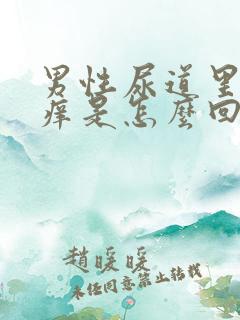 男性尿道里
痒是怎麼回
趙暖暖
未任同意禁止转载